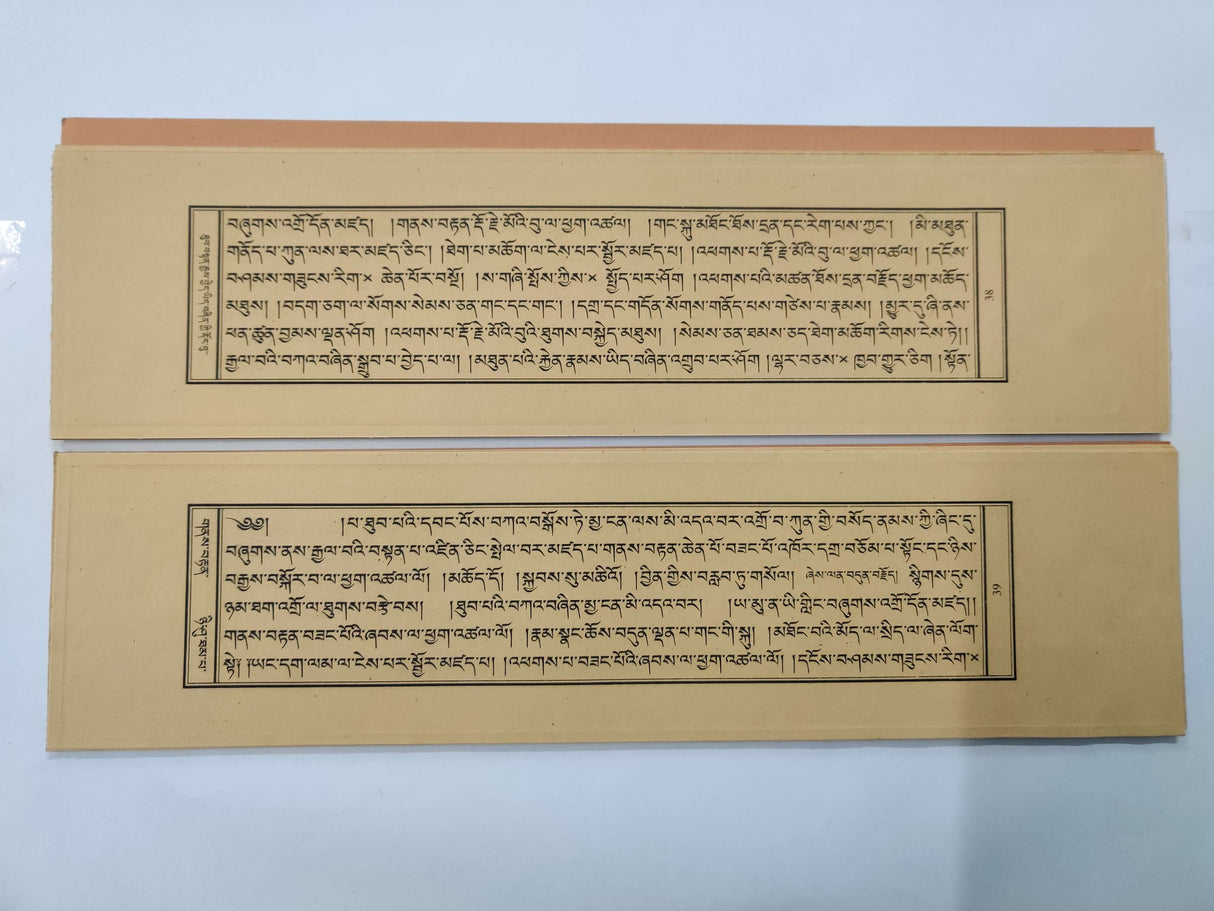 བཞུགས་འགྲོ་དོན་མཛད། །གནས་བརྟན་རྡོ་རྗེ་མོའི་བུ་ལ་ཕྱག་འཚལ། །གང་སྐུ་མཐོང་ཐོས་དྲན་དང་རེག་པས་ཀྱང་། །མི་མཐུན་
གནོད་པ་ཀུན་ལས་ཐར་མཛད་ཅིང་། །ཐེག་པ་མཆོག་ལ་ངེས་པར་སྦྱོར་མཛད་པ། །འཕགས་པ་རྡོ་རྗེ་མོའི་བུ་ལ་ཕྱག་འཚལ། །དངོས་
བཤམས་གཟུངས་རིག་× ཆེན་པོར་བསྔོ། །ས་གཞི་སྤོས་ཀྱིས་× སྤྱོད་པར་ཤོག །འཕགས་པའི་མཚན་ཐོས་དྲན་བརྗོད་ཕྱག་མཆོད་
མཐུས། །བདག་ཅག་ལ་སོགས་སེམས་ཅན་གང་དང་གང་། །དགྲ་དང་གདོན་སོགས་གནོད་པས་གཙེས་པ་རྣམས། །མྱུར་དུ་ཞི་ནས་
ཕན་ཚུན་བྱམས་ལྡན་ཤོག །འཕགས་པ་རྡོ་རྗེ་མོའི་བུའི་ཐུགས་བསྐྱེད་མཐུས། །སེམས་ཅན་ཐམས་ཅད་ཐེག་མཆོག་རིགས་ངེས་ཏེ།།
རྒྱལ་བའི་བཀའ་བཞིན་སྒྲུབ་པ་བྱེད་པ་ལ། །མཐུན་པའི་རྐྱེན་རྣམས་ཡིད་བཞིན་འགྲུབ་པར་ཤོག །ལྷར་བཅས་× ཁྱབ་གྱུར་ཅིག །སྟོན་
38
༄༅། །པ་ཐུབ་པའི་དབང་པོས་བཀའ་བསྒོས་ཏེ་མྱ་ངན་ལས་མི་འདའ་བར་འགྲོ་བ་ཀུན་གྱི་བསོད་ནམས་ཀྱི་ཞིང་དུ་
བཞུགས་ནས་རྒྱལ་བའི་བསྟན་པ་འཛིན་ཅིང་སྤེལ་བར་མཛད་པ་གནས་བརྟན་ཆེན་པོ་བཟང་པོ་འཁོར་དགྲ་བཅོམ་པ་སྟོང་དང་ཉིས་
བརྒྱས་བསྐོར་བ་ལ་ཕྱག་འཚལ་ལོ། །མཆོད་དོ། །སྐྱབས་སུ་མཆིའོ། །བྱིན་གྱིས་བརླབ་ཏུ་གསོལ། ཞེས་ལན་བདུན་བརྗོད། སྙིགས་དུས་
ཉམ་ཐག་འགྲོ་ལ་ཐུགས་བརྩེ་བས། །ཐུབ་པའི་བཀའ་བཞིན་མྱ་ངན་མི་འདའ་བར། །ཡ་མུ་ན་ཡི་གླིང་བཞུགས་འགྲོ་དོན་མཛད།།
གནས་བརྟན་བཟང་པོའི་ཞབས་ལ་ཕྱག་འཚལ་ལོ། །རྣམ་སྣང་ཆོས་བདུན་ལྡན་པ་གང་གི་སྐུ། །མཐོང་བའི་མོད་ལ་སྲིད་ལ་ཞེན་ལོག་
སྟེ། །ཡང་དག་ལམ་ལ་ངེས་པར་སྦྱོར་མཛད་པ། །འཕགས་པ་བཟང་པོའི་ཞབས་ལ་ཕྱག་འཚལ་ལོ། །དངོས་བཤམས་གཟུངས་རིག་×
གནས་བརྟན་
39